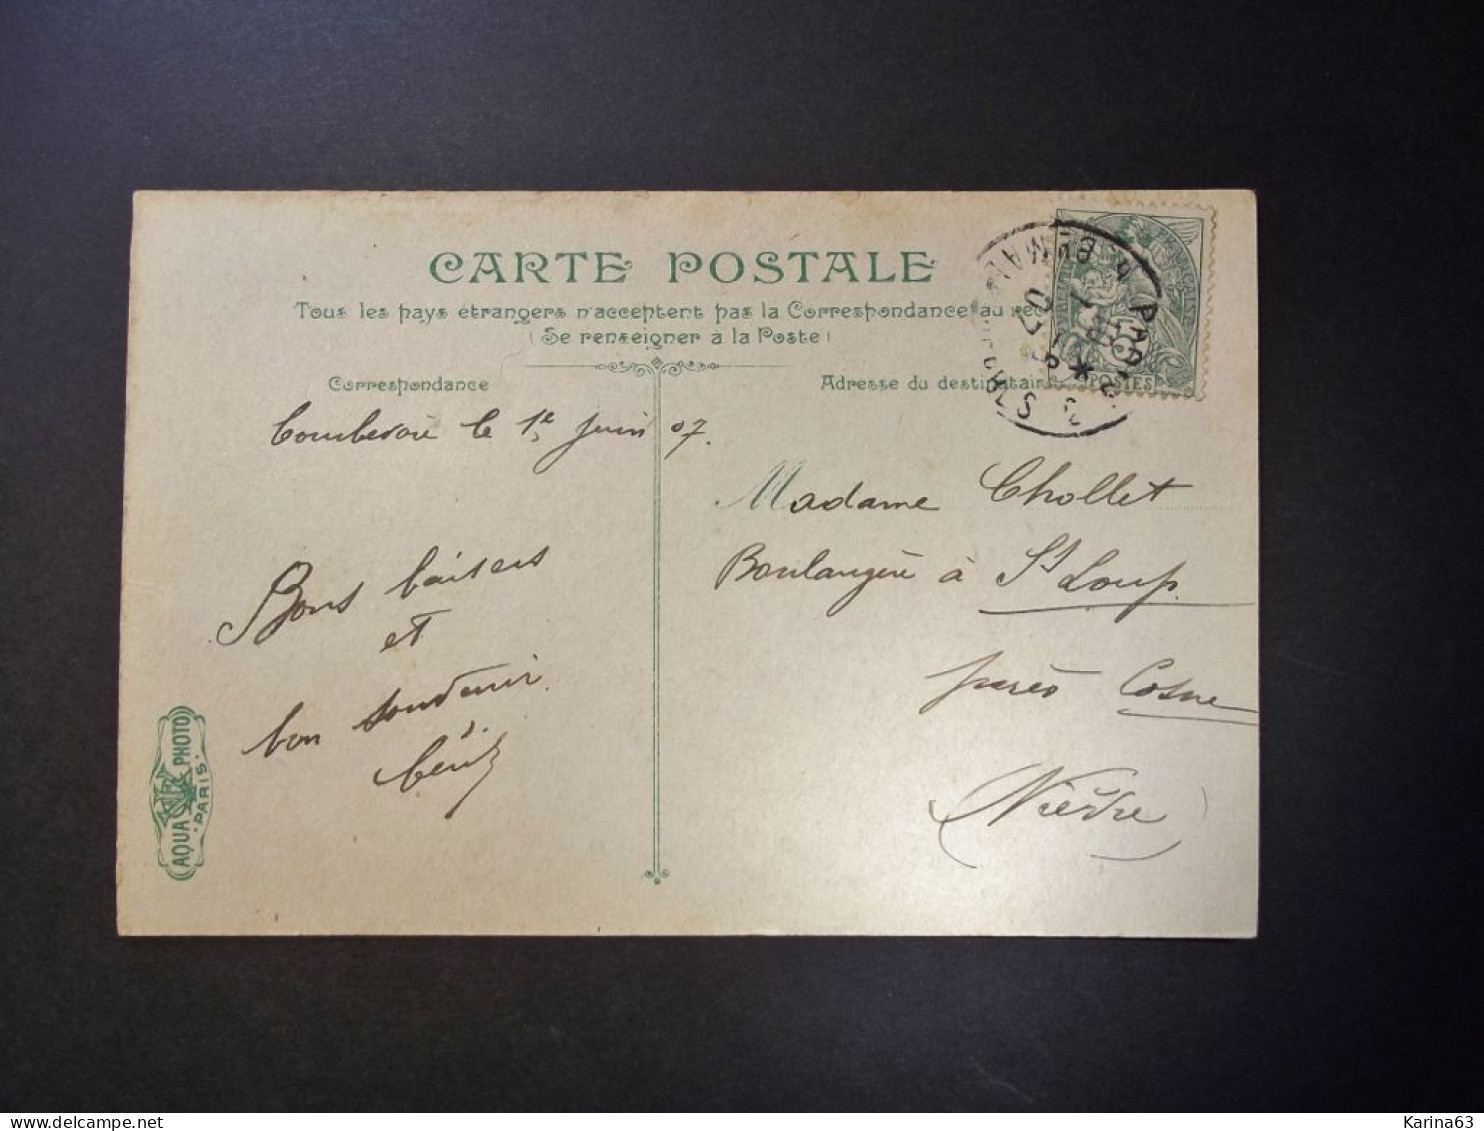 CARTE POSTALE
Tous les pays étrangers n'acceptent pas la Correspondance au rec
(Se renseigner à la Poste)
Correspondance
Adresse du destinataire
Courbevoie le 1er Juin 07.
Bons baisers
et
bon souvenir
Madame Chollet
Boulangère à St Loup
près Cosne
(Nièvre)
AQUA PHOTO
PARIS
PARIS
POSTES
delcampe.net
Karina63